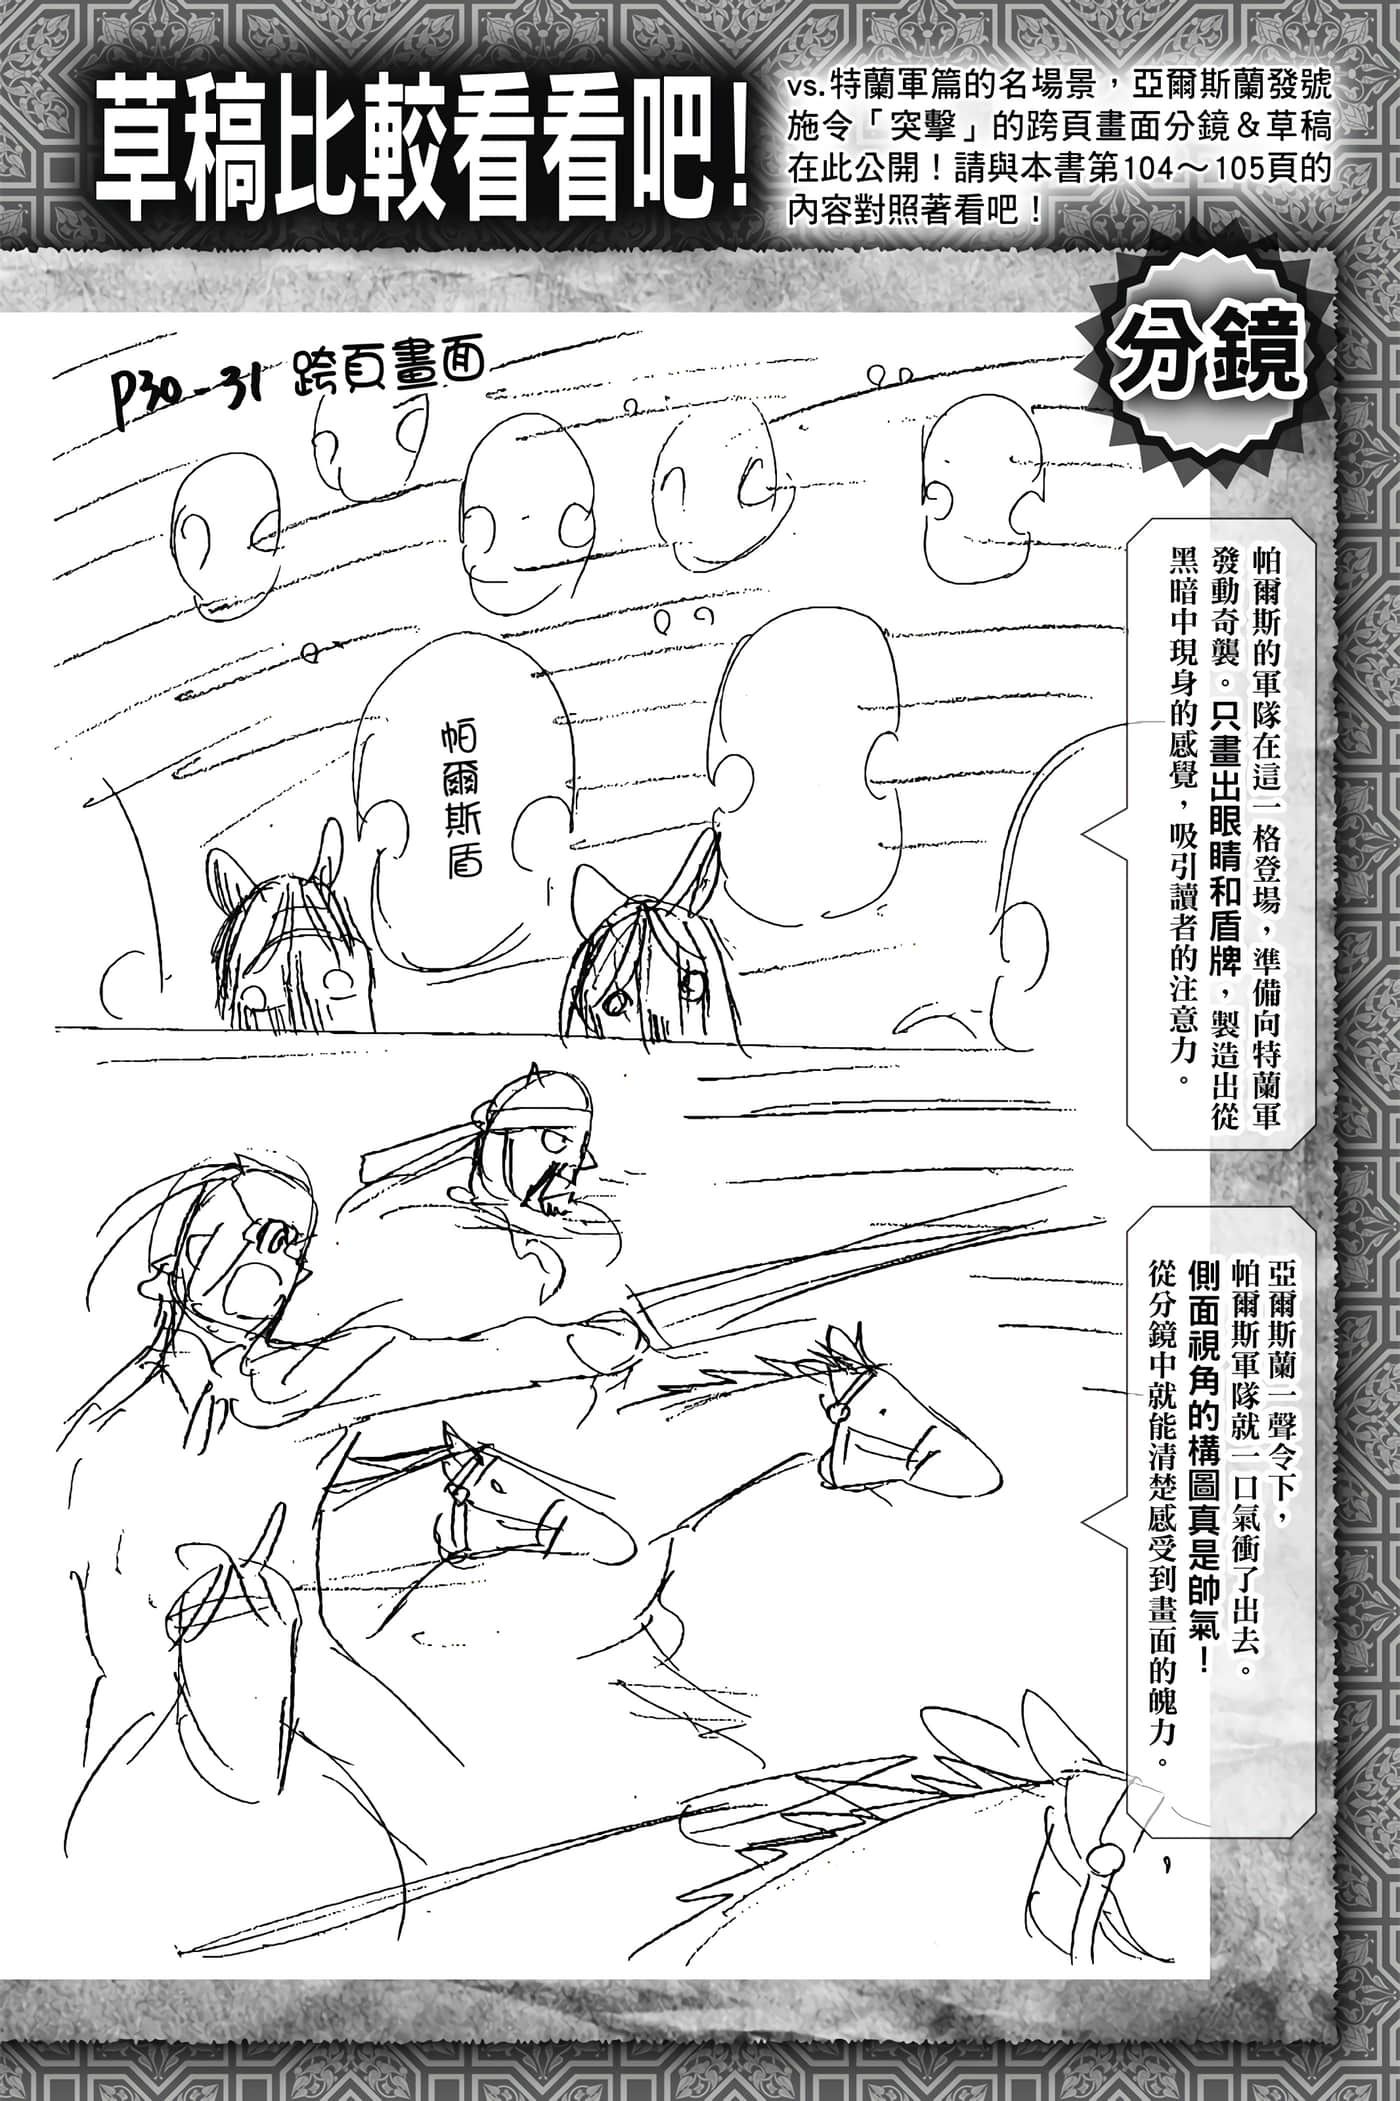 草稿比較看看吧!
vs.特蘭軍篇的名場景，亞爾斯蘭發號
施令「突擊」的跨頁畫面分鏡＆草稿
在此公開！請與本書第104～105頁的
內容對照著看吧！
分鏡
P30-31 跨頁畫面
帕爾斯的軍隊在這一格登場，準備向特蘭軍
發動奇襲。只畫出眼睛和盾牌，製造出從
黑暗中現身的感覺，吸引讀者的注意力。
帕爾斯盾
亞爾斯蘭一聲令下，
帕爾斯軍隊就一口氣衝了出去。
側面視角的構圖真是帥氣！
從分鏡中就能清楚感受到畫面的魄力。